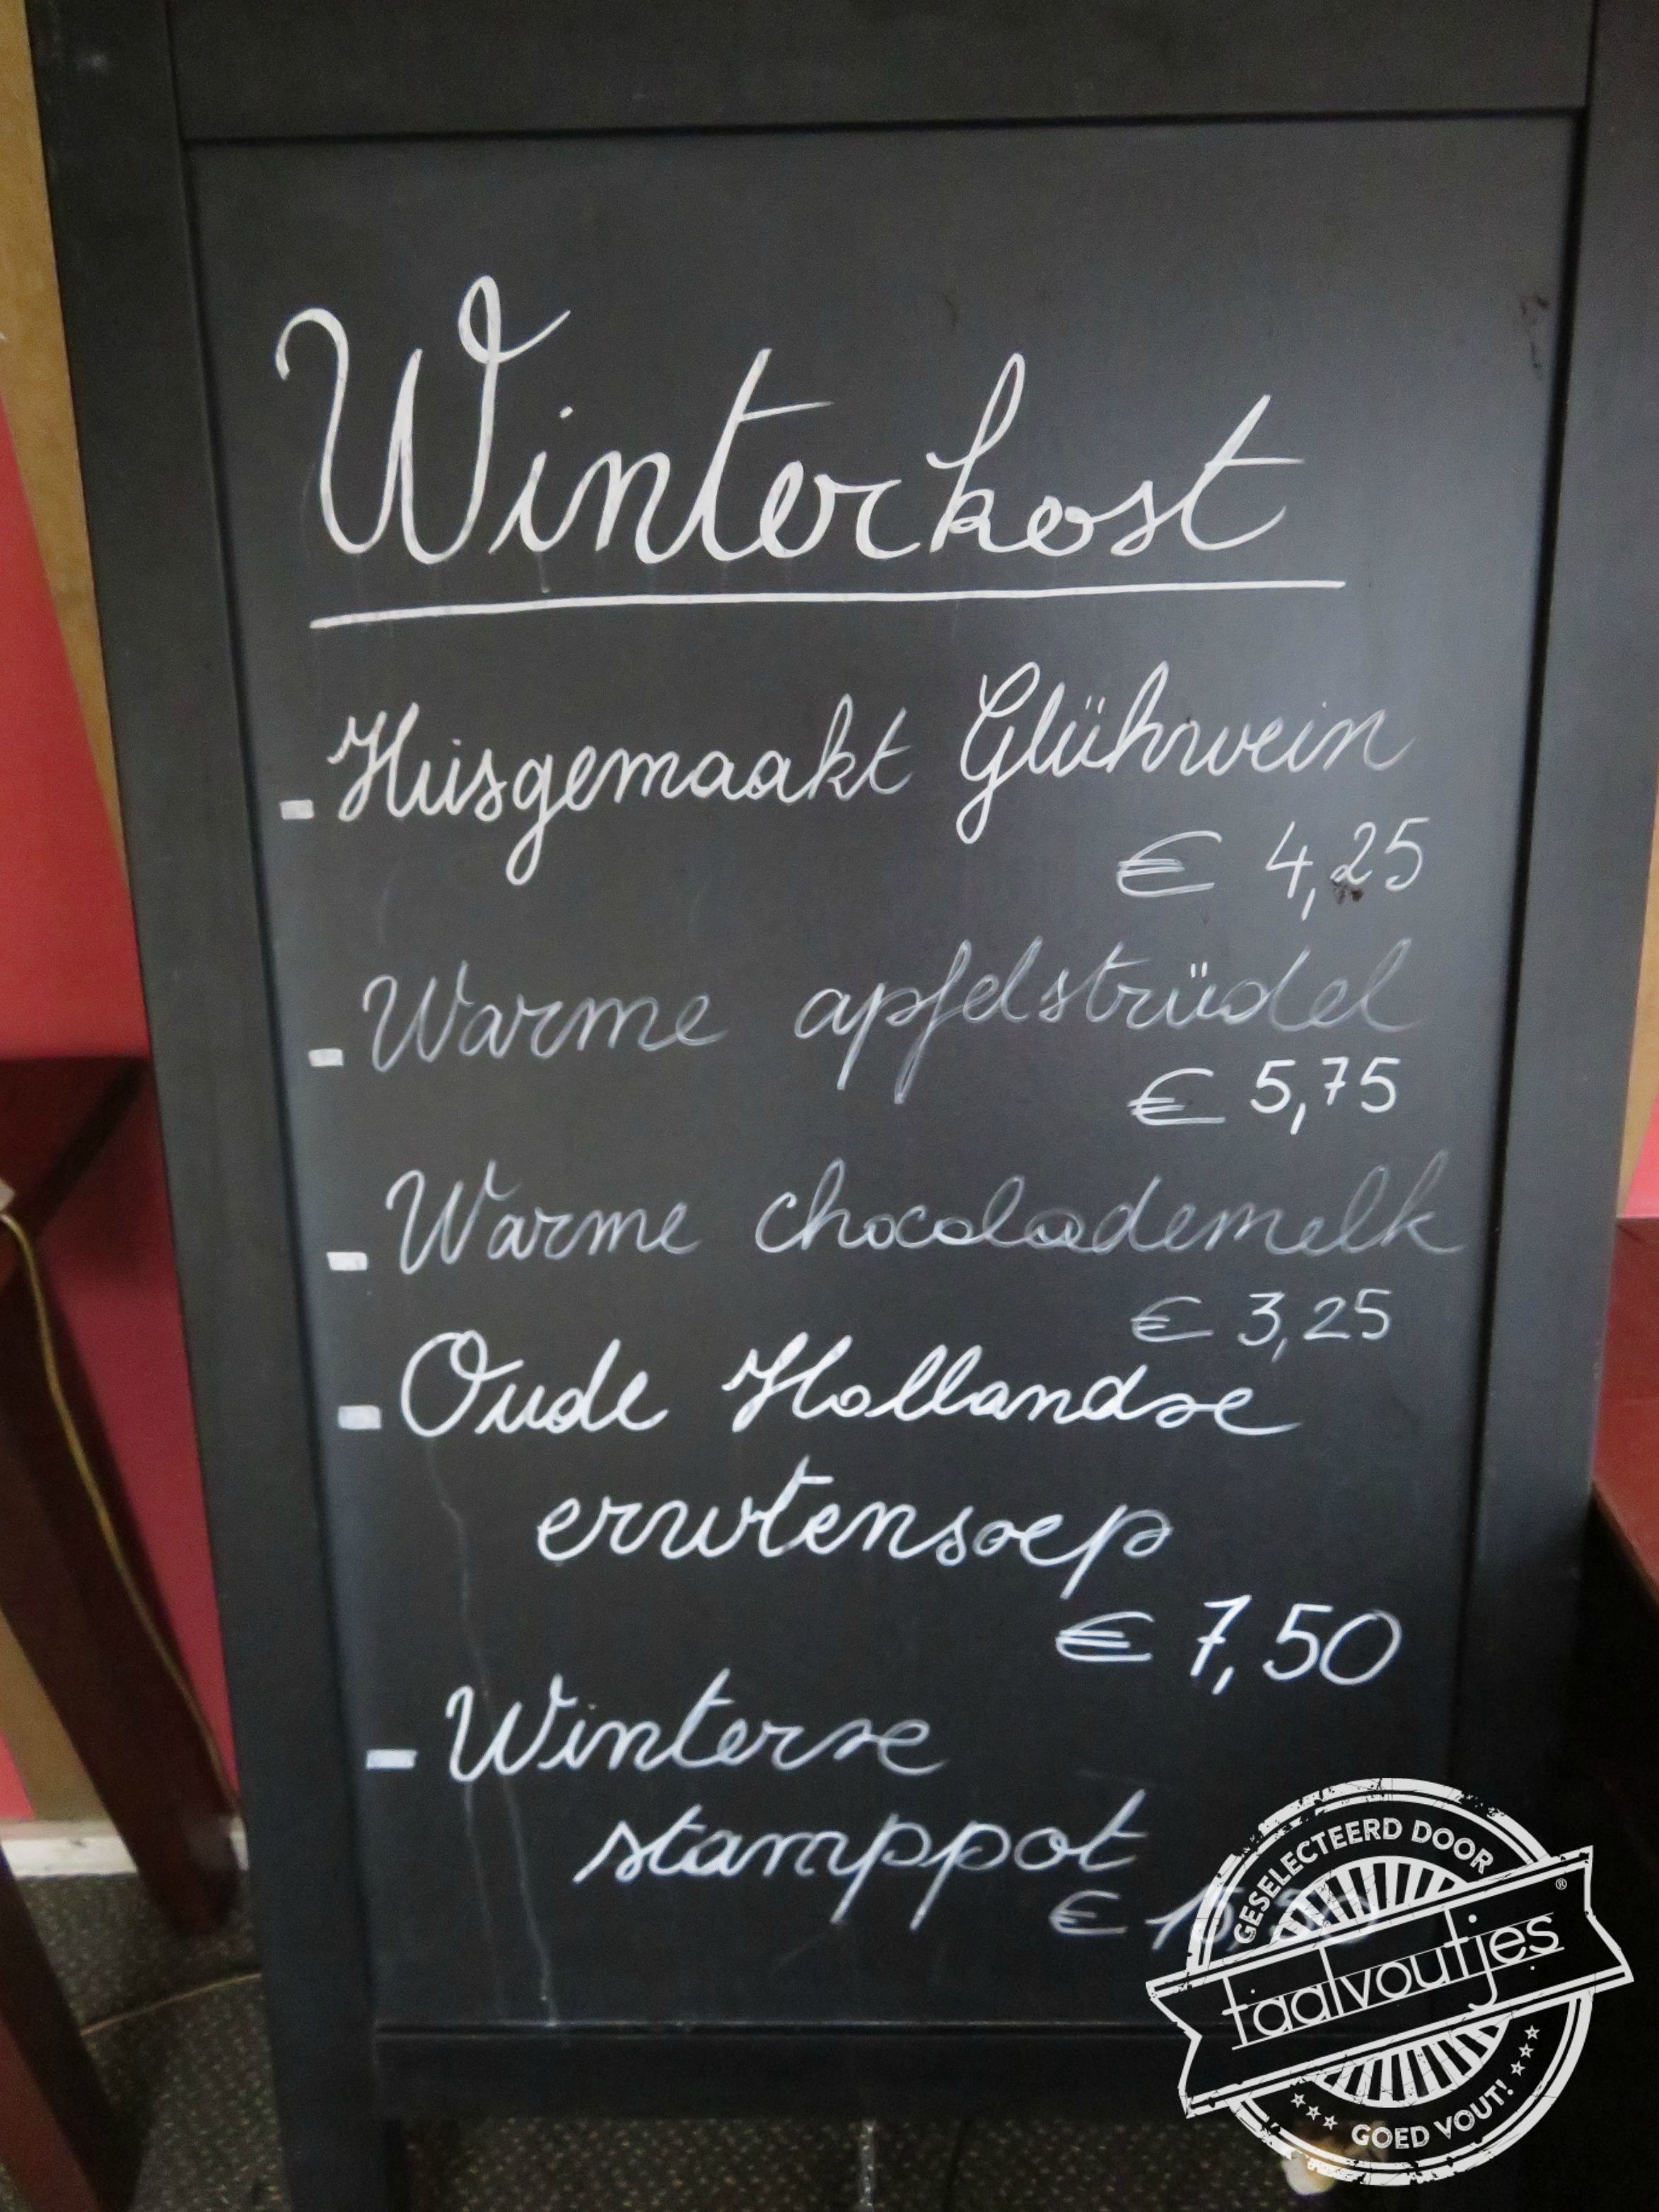 Winterkost
- Huisgemaakt Glühwein
€ 4,25
- Warme apfelstrüdel
€ 5,75
- Warme chocolademelk
€ 3,25
- Oude Hollandse
erwtensoep
€ 7,50
- Winterse
stamppot
€
GESELECTEERD DOOR
taalvoutjes®
GOED VOUT!